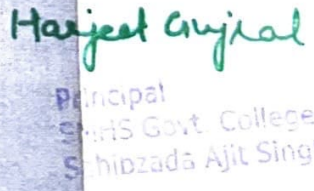 Harjeet Gujral
Principal
Govt. College
Sahibzada Ajit Sing